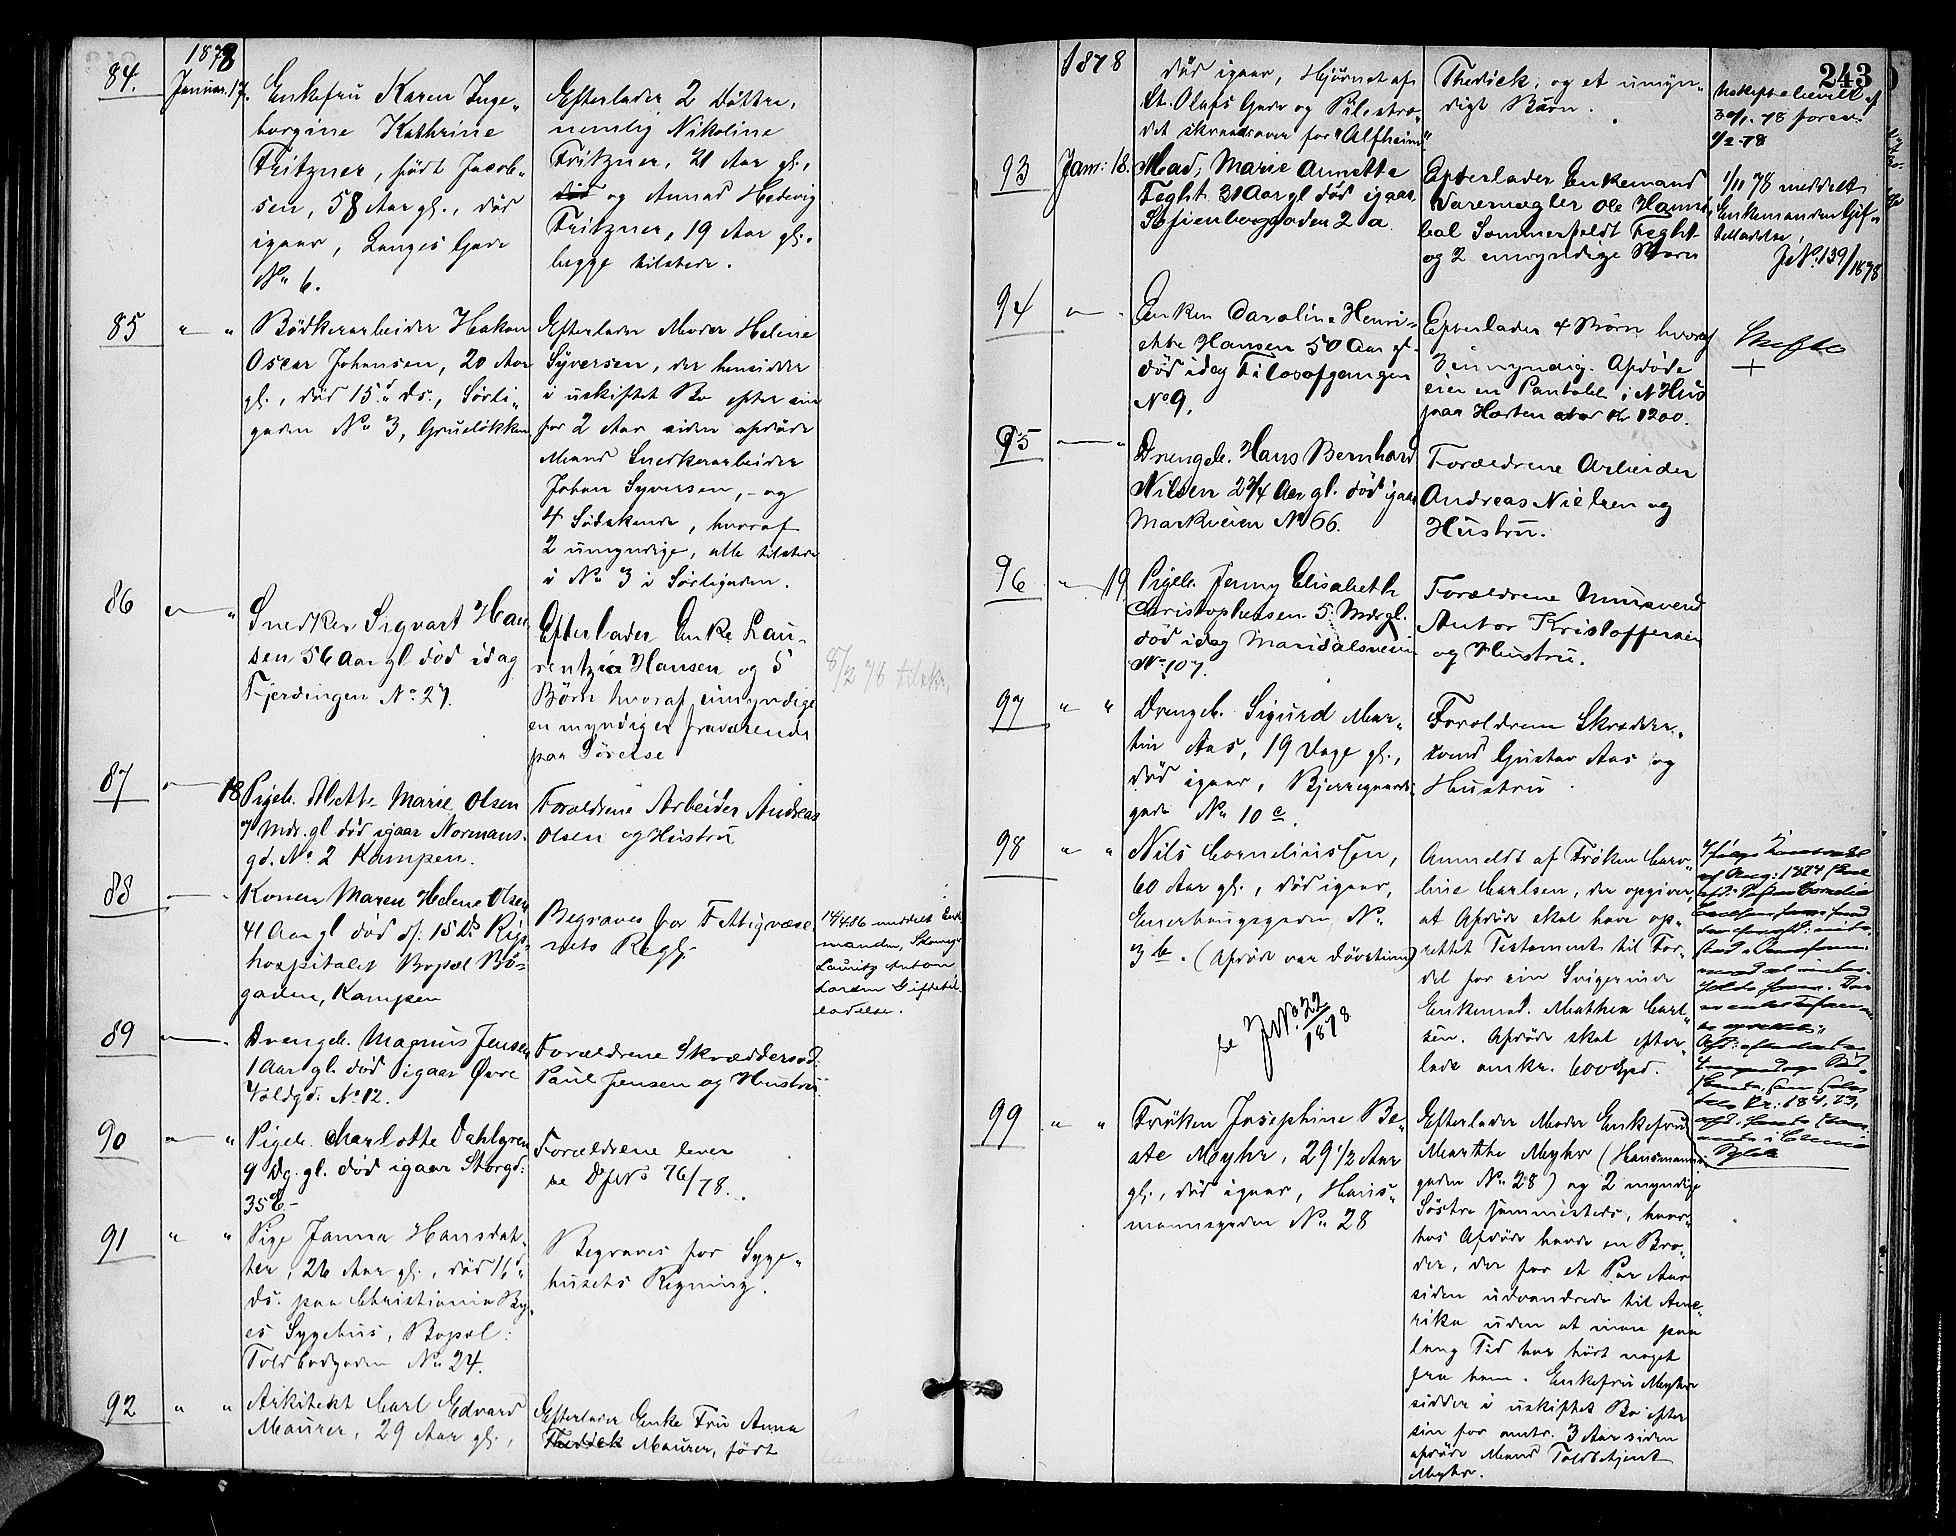 1878
84.
Januar. 17.
Enkefru Karen Inge„
borgine Kathrine
Fritzner, født Jacob„
sen, 58 Aar gl., død
igaar, Langes Gade
No 6.
Efterlader 2 Døttre,
nemlig Nikoline
Fritzner, 21 Aar gl.,
og Anna Hedevig
Fritzner, 19 Aar gl.,
begge tilstede.
85
" "
Bødkerarbeider Hakon
Oscar Johansen, 20 Aar
gl., død 15de ds., Sørli„
gaden No 3, Grueløkken
Efterlader Moder Helene
Syversen, der hensidder
i uskiftet Bo efter sin
for 2 Aar siden afdøde
Mand Snedkerarbeider
Johan Syversen, - og
4 Sødskende, hvoraf
2 umyndige, alle tilstede
i No 3 i Sørligaden.
86
" "
Snedker Sigvart Han
sen 56 Aar gl død idag
Fjerdingen No 27.
Efterlader Enke Lau-
rentzia Hansen og 5
Børn hvoraf umyndige
en myndig er fraværende
paa Størelse
8/2 78
87
" 18
Pigeb. Mette Marie Olsen
7 Mdr. gl død igaar Normans-
gd. No 2 Kampen.
Forældrene Arbeider Andreas
Olsen og Hustru
88
"
Konen Maren Helene Olsen
41 Aar gl død d: 15 Ds Rigs-
hospitalet Bopæl Bø-
gaden, Kampen
Begraves for Fattigvæse
nets Regg.
14/4 86 meddelt Enke
manden, Skomgr
Lauritz Anton
Larsen Giftetil„
ladelse.
89
"
Drengeb. Magnus Jensen
1 Aar gl. død igaar Øvre
Voldgd: No 12.
Forældrene Skræddersvd.
Paul Jensen og Hustru
90
" "
Pigeb. Charlotte Dahlgren
9 Dg. gl. død igaar Storgd:
35 E-
Forældrene lever
se DJNo 76/78.
91
" "
Pige Janna Hansdat„
ter, 26 Aar gl., død 16de
ds. paa Christiania By„
es Sygehus, Bopæl:
Toldbodgaden No 24.
Begraves for Syge„
husets Regning.
92
" "
Arkitekt Carl Edvard
Maurer, 29 Aar gl.,
Efterlader Enke Fru Anna
Thedick Maurer, født
243
1878
død igaar, Hjørnet af
St. Olafs Gade og Pilestræ„
det skraasover for "Alfheim"
Thedick, og et umyn„
digt Barn.
Uskiftebevill af
30/1. 78 forev.
1/2 78
93
Jan: 18.
Mad; Marie Annette
Feght 31 Aar gl død igaar
Sofienberggaden 2 a.
Efterlader Enkemand
Varemægler Ole Hanni
bal Sommerfeldt Feght
og 2 umyndige Børn
1/11 78 meddelt
Enkemanden Gif„
telladelse,
JNo. 139/1878
94
"
Enken Caroline Henri-
ette Hansen 50 Aar gl.
død idag Filosofgangen
No 9.
Efterlader 4 Børn hvoraf
3 umyndig. Afdøde
eier en Pantobl. i N Hus
paa Horten stor Kr 1200.
Skifte
+
95
" "
Drengeb. Hans Bernhard
Nilsen 2 3/4 Aar gl. død igaar
Markveien No 66.
Forældrene Arbeider
Andreas Nielsen og
Hustru.
96
" 19
Pigeb. Jenny Elisabeth
Christophersen 5 Mdr gl.
død idag Maridalsveien
No 107.
Forældrene Mursvend
Anton Kristoffersen
og Hustru.
97
" "
Drengeb. Sigurd Mar„
tin Aas, 19 Dage gl.,
død igaar, Bjerregaards„
gade No 10 c.
Forældrene Skrædder„
svend Gustav Aas og
Hustru.
98
" "
Nils Corneliussen,
60 Aar gl., død igaar,
Enerhaugsgaden No
3 b. (Afdøde var døvstum)
se JNo. 22/1878
Anmeldt af Frøken Caro„
line Carlsen, der opgiver,
at Afdøde skal have op„
rettet Testament til For„
del for sin Svigerinde
Enkemad. Mathea Carl„
sen. Afdøde skal efter„
lade omkr. 600 Spd.
99
" "
Frøken Josephine Be„
ate Meyhr, 29 1/2 Aar
gl., død igaar, Haus„
mannsgaden No 28
Efterlader Moder Enkefru
Marthe Meyhr (Hausmanns
gaden No 28) og 2 myndige
Søstre sammesteds, hvor„
hos Afdøde havde en Bro„
der, der for et Par Aar
siden udvandrede til Ame„
rika uden at man paa
lang Tid har hørt noget
fra ham. Enkefru Meyhr
sidder i uskiftet Bo efter
sin for omtr. 3 Aar siden
afdøde Mand Toldbetjent
Meyhr.